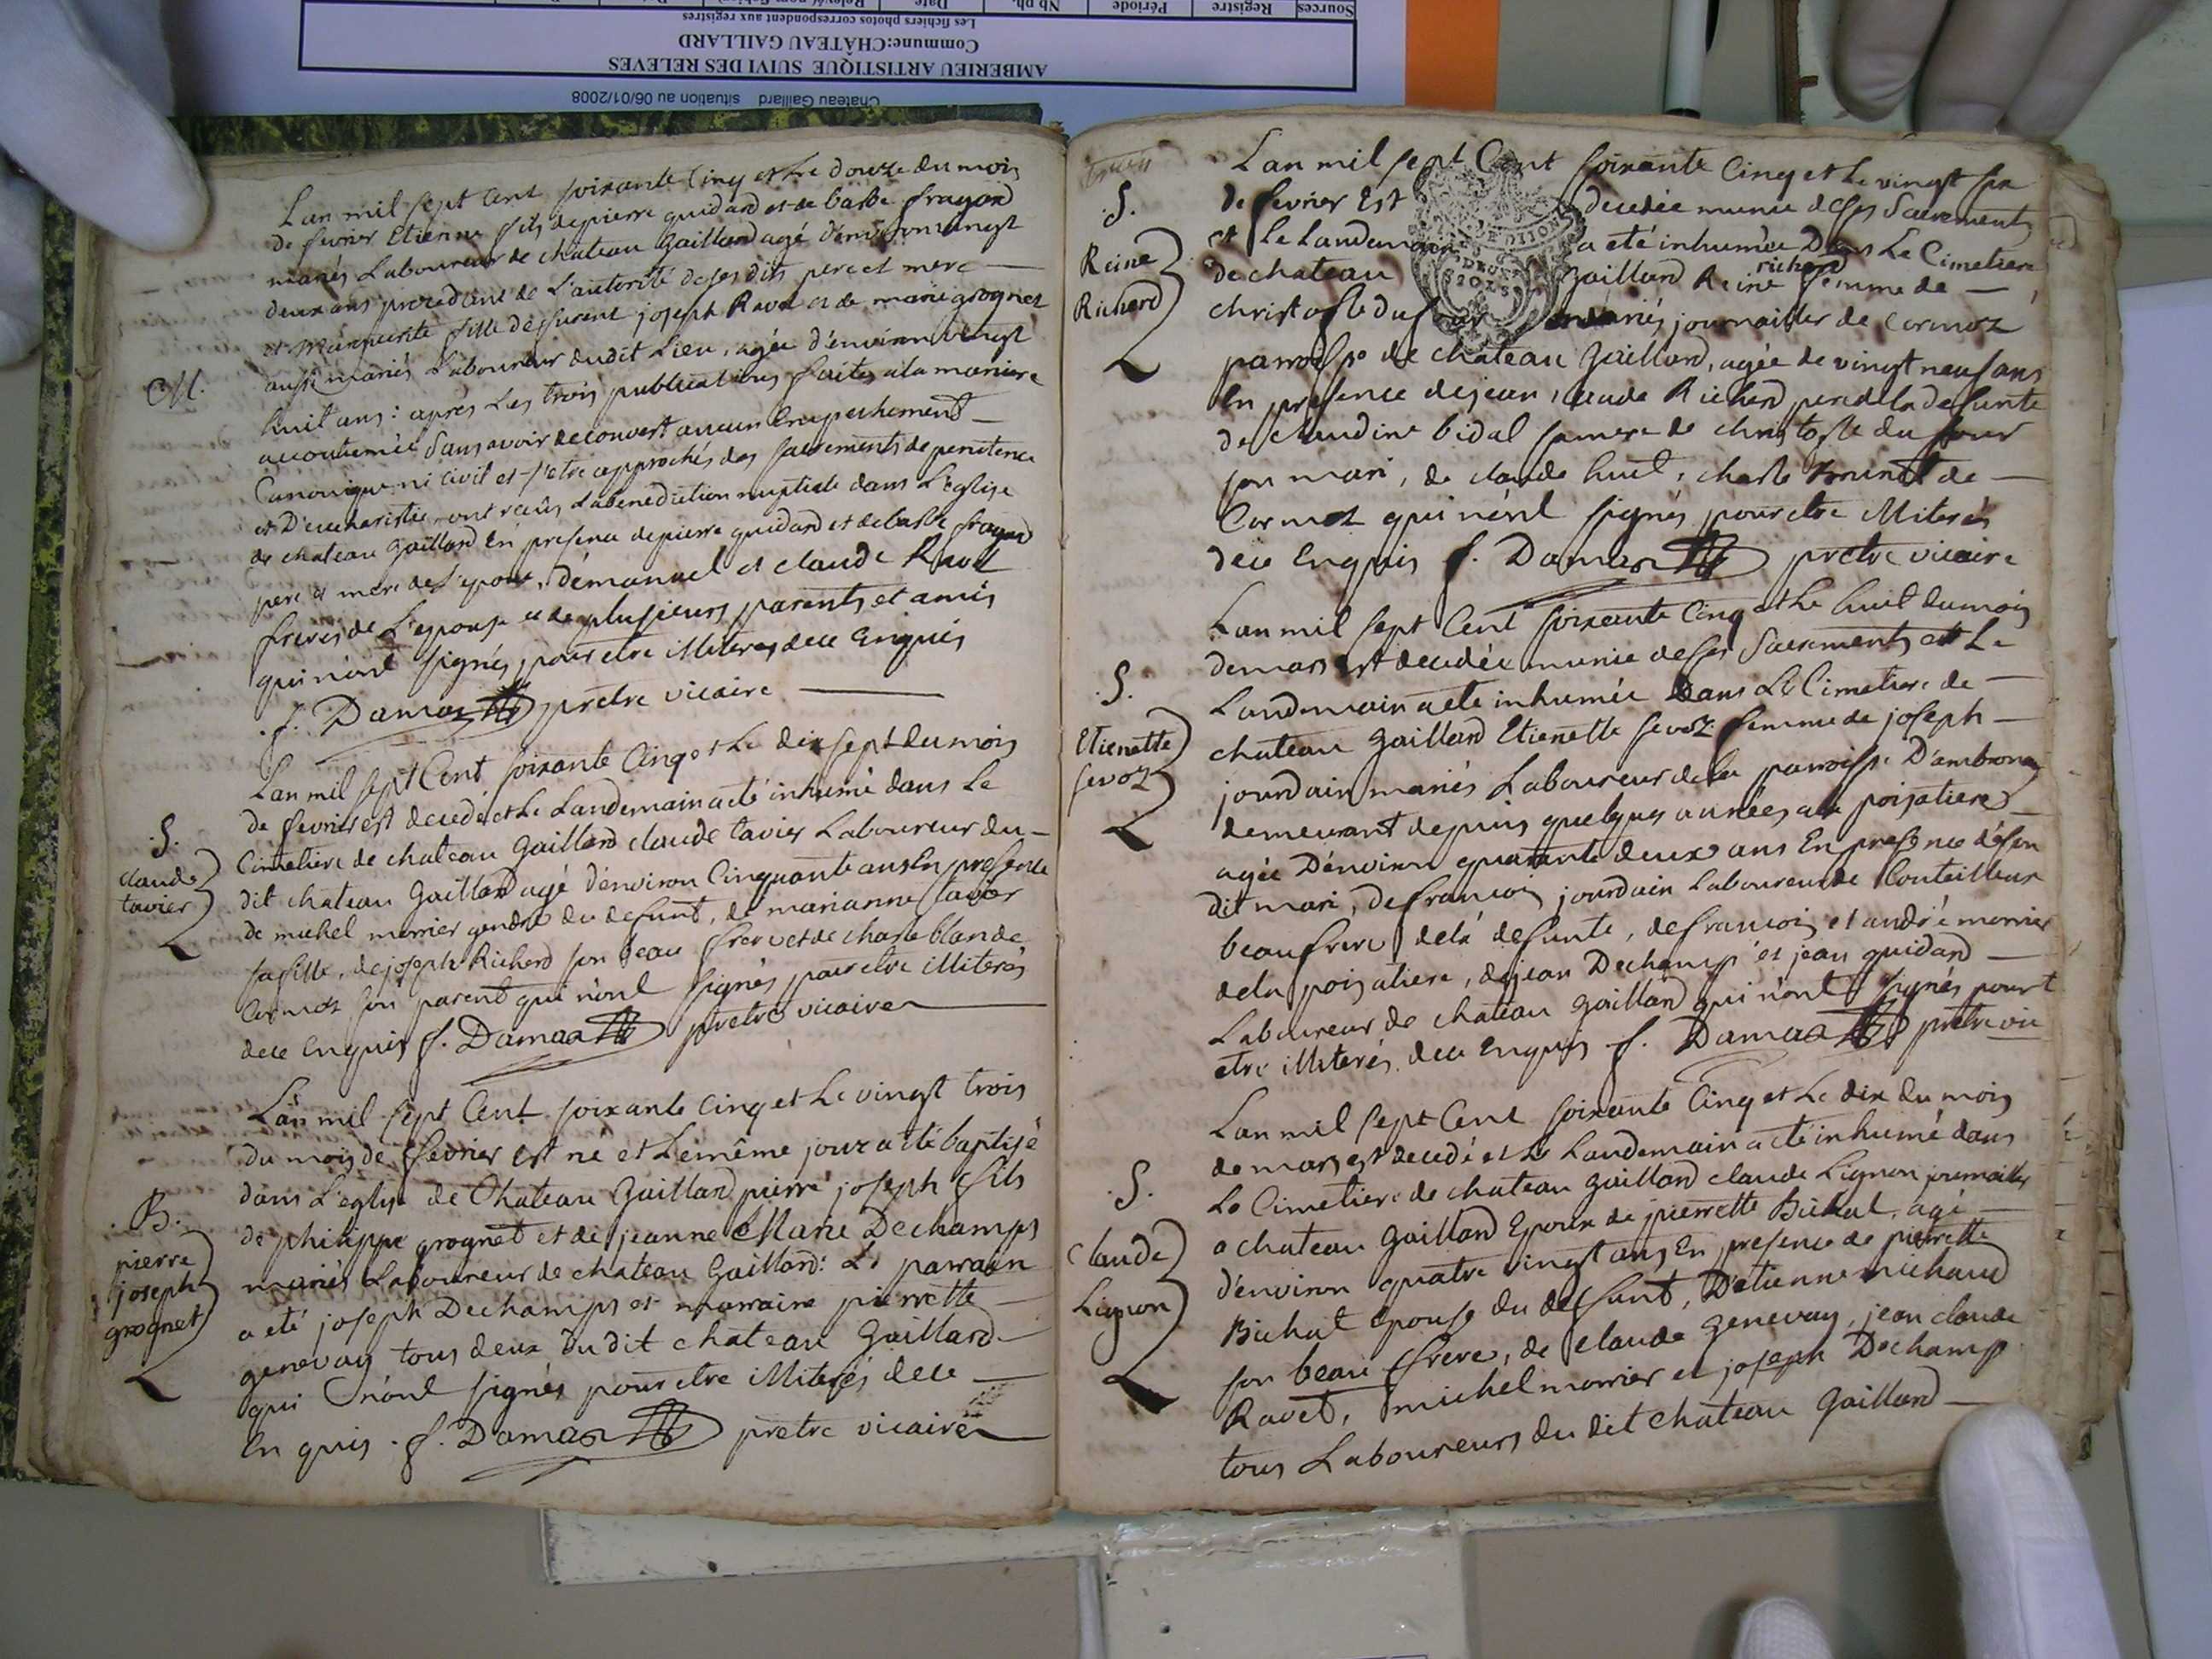 Chateau Gaillard situation au 06/01/2008
AMBERIEU ARTISTIQUE SUIVI DES RELEVES
Commune:CHÂTEAU GAILLARD
Les fichiers photos correspondent aux registres
Sources Registre Période Nb ph. Date
Lan mil sept Cent soixante Cinq et Le douze du mois
de fevrier Etienne fils de pierre guidard et de barbe frayard
mariés Laboureur de chateau gaillard agé d'environ vingt
deux ans procedant de L'autorité de ses dits pere et mere
et Marguerite fille de furent joseph Ravet et de marie grognet
aussi mariés Laboureur dudit Lieu, agée d'environ vingt
M.
huit ans: aprés Les trois publications faites a la maniere
accoutumée sans avoir decouvert aucun Empechement
Canonique ni civil et s'etre approchés des sacrements de penitence
et D'eucharistie, ont reçus La benediction nuptiale dans L'eglise
de chateau gaillard En presence de pierre guidard et de barbe frayard
pere et mere de L'epoux, d'émanuel et claude Ravet
freres de L'epouse et de plusieurs parents et amis
qui n'ont signés pour etre illiteres de ce Enquis
f. Damas prêtre vicaire
Lan mil sept Cent soixante Cinq et Le dix sept du mois
de fevrier est decedé et Le Landemain a eté inhumé dans Le
S.
claude
tavier
Cimetiere de chateau gaillard claude tavier Laboureur du
dit chateau gaillard agé d'environ Cinquante ans En presence
de michel morrier gendre du defunt, de marianne tavier
sa fille, de joseph Richerd son beau frere et de charle blande
Cormoz son parent qui n'ont signés pour etre illiterés
de ce enquis f. Damas prêtre vicaire
Lan mil sept Cent soixante cinq et Le vingt trois
du mois de fevrier est né et Le même jour a eté baptisé
dans L'eglise de Chateau Gaillard pierre joseph fils
B.
pierre
joseph
grognet
de philippe grognet et de jeanne Marie Dechamps
mariés Laboureur de chateau Gaillard: Le parrain
a eté joseph Dechamps et marraine pierrette
genevay tous deux du dit chateau Gaillard
qui n'ont signés pour etre illiterés de ce
En quis. f. Damas prêtre vicaire
Lan mil sept Cent soixante Cinq et Le vingt six
S.
Reine
Richerd
de fevrier Est decedée munie de ses Sacrements
et Le Landemain a eté inhumée Dans Le Cimetiere
de chateau Gaillard Reine richerd femme de
christofle dufour mariés journallier de cormoz
parroisse de chateau Gaillard, agée de vingt neuf ans
En presence de jean claude Richerd pere de la defunte
de claudine bidal sa mere de christofle du four
son mari, de claude huit, charle brunet de
Cormoz qui n'ont signés pour etre illiterés
de ce Enquis f. Damas prêtre vicaire
Lan mil sept Cent soixante Cinq et Le huit du mois
de mars est decedée munie de ses Sacrements et Le
S.
Etienette
sevoz
Landemain a eté inhumée Dans Le Cimetiere de
chateau gaillard Etienette sevoz femme de joseph
jourdain mariés Laboureur de la parroisse D'ambronay
demeurant depuis quelques années a la poisatiere
agée D'environ quarante deux ans En presence de son
dit mari, de francois jourdain Laboureur de Conteilleux
beau frere de la defunte, de francois et andré morrier
de la poisatiere, de jean Dechamp et jean guidard
Laboureur de chateau gaillard qui n'ont signés pour
etre illiterés de ce enquis f. Damas prêtre vic
Lan mil sept Cent soixante Cinq et Le dix du mois
de mars est decedé et Le Landemain a eté inhumé dans
S.
Claude
Lignon
Le Cimetiere de chateau gaillard claude Lignon journallier
a chateau gaillard Epoux de pierrette Bichat, agé
d'environ quatre vingt ans En presence de pierrette
Bichat epouse du deffunt, D'etienne michaud
son beau frere, de claude genevay, jean claude
Ravet, michel morrier et joseph Dechamp
tous Laboureurs du dit chateau Gaillard